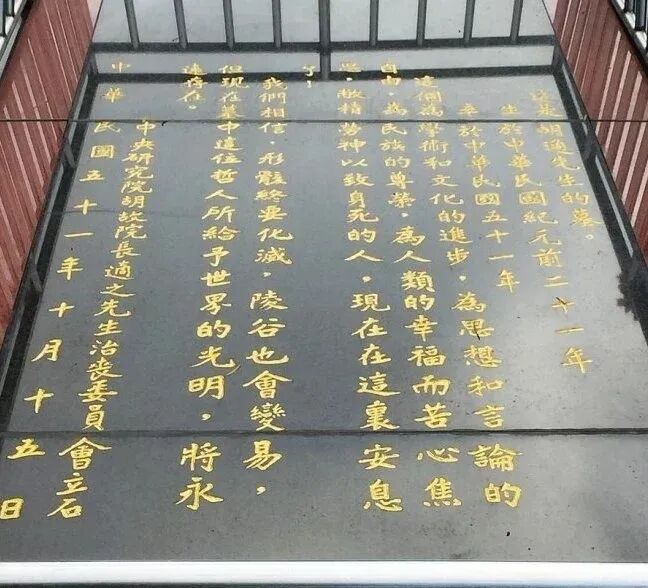 這是胡適先生的墓。
生於中華民國紀元前二十一年
卒於中華民國五十一年
這個為學術和文化的進步，為思想和言論的
自由，為民族的尊榮，為人類的幸福而苦心焦
思，敝精勞神以致身死的人，現在在這裏安息
了！
我們相信，形骸終要化滅，陵谷也會變易，
但現在墓中這位哲人所給予世界的光明，將永
遠存在。
中央研究院胡故院長適之先生治喪委員會立石
中華民國五十一年十月十五日